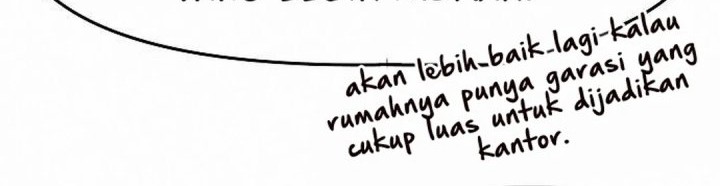 akan lebih baik lagi kalau
rumahnya punya garasi yang
cukup luas untuk dijadikan
kantor.